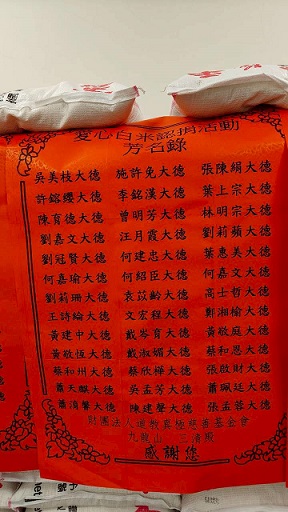 愛心白米認捐活動
芳名錄
吳美枝大德 施許免大德 張陳絹大德
許銘纓大德 李銘漢大德 葉上宗大德
陳育德大德 曾明芳大德 林明宗大德
劉嘉文大德 汪月霞大德 劉莉蘋大德
劉冠賢大德 何建忠大德 葉惠美大德
何嘉瑜大德 何紹臣大德 何嘉文大德
劉莉珊大德 袁苡齡大德 高士哲大德
王詩綸大德 文宏程大德 鄭湘榆大德
黃建中大德 戴岑育大德 黃敬庭大德
黃敬恆大德 戴淑媚大德 蔡和恩大德
蔡和州大德 蔡欣樺大德 張啟財大德
蕭天賜大德 吳孟芳大德 蕭珮廷大德
蕭順馨大德 陳建瑩大德 張孟蓉大德
財團法人 慈善基金會
九龍山 三清殿
感謝您